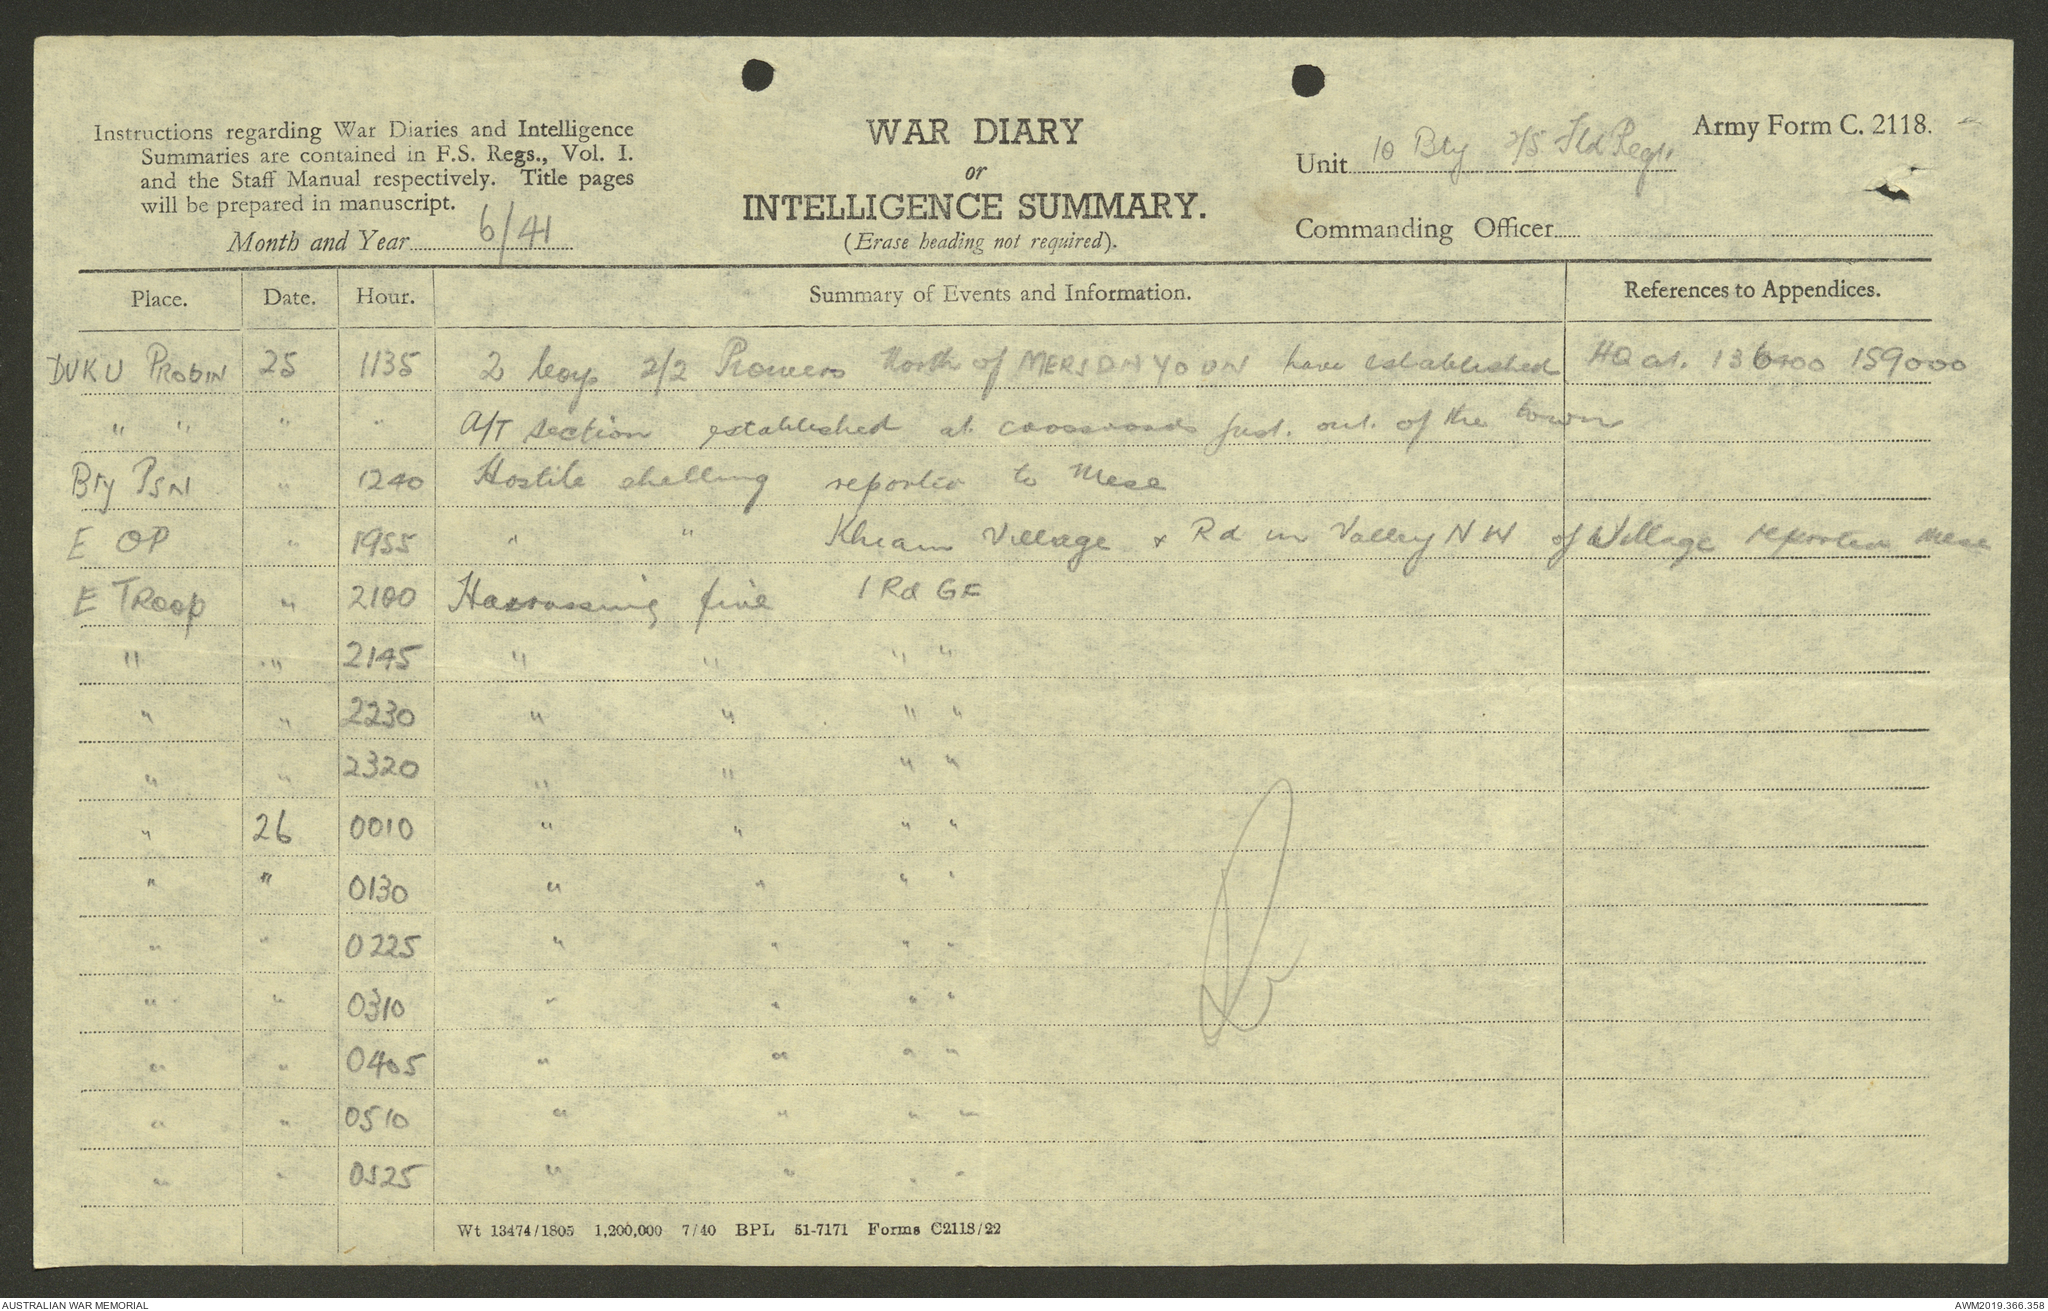 Instructions regarding War Diaries and Intelligence
Summaries are contained in F.S. Regs., Vol. I.
and the Staff Manual respectively. Title pages
will be prepared in manuscript.
Month and Year 6/41
WAR DIARY
or
INTELLIGENCE SUMMARY.
(Erase heading not required).
Army Form C. 2118.
Unit 10 Bty 2/5 Fld Regt
Commanding Officer
Place. Date. Hour. Summary of Events and Information. References to Appendices.
25 1135 2 Coys 2/2 Pioneers North of have established HQ at. 159000
" " " " A/T section established at crossroads just. out. of the town
Bty PSN " 1240 Hostile shelling reported to Mese
E OP " 1955 " " Khiam Village & Rd in Valley NW of Village reported Mese
E TROOP " 2100 Harrassing fire 1 Rd GF
" " 2145 " " " "
" " 2230 " " " "
" " 2320 " " " "
" 26 0010 " " " "
" " 0130 " " " "
" " 0225 " " " "
" " 0310 " " " "
" " 0405 " " " "
" " 0510 " " " "
" " 0525 " " " "
Wt 13474/1805 1,200,000 7/40 BPL 51-7171 Forms C2118/22
AUSTRALIAN WAR MEMORIAL
AWM2019.366.358